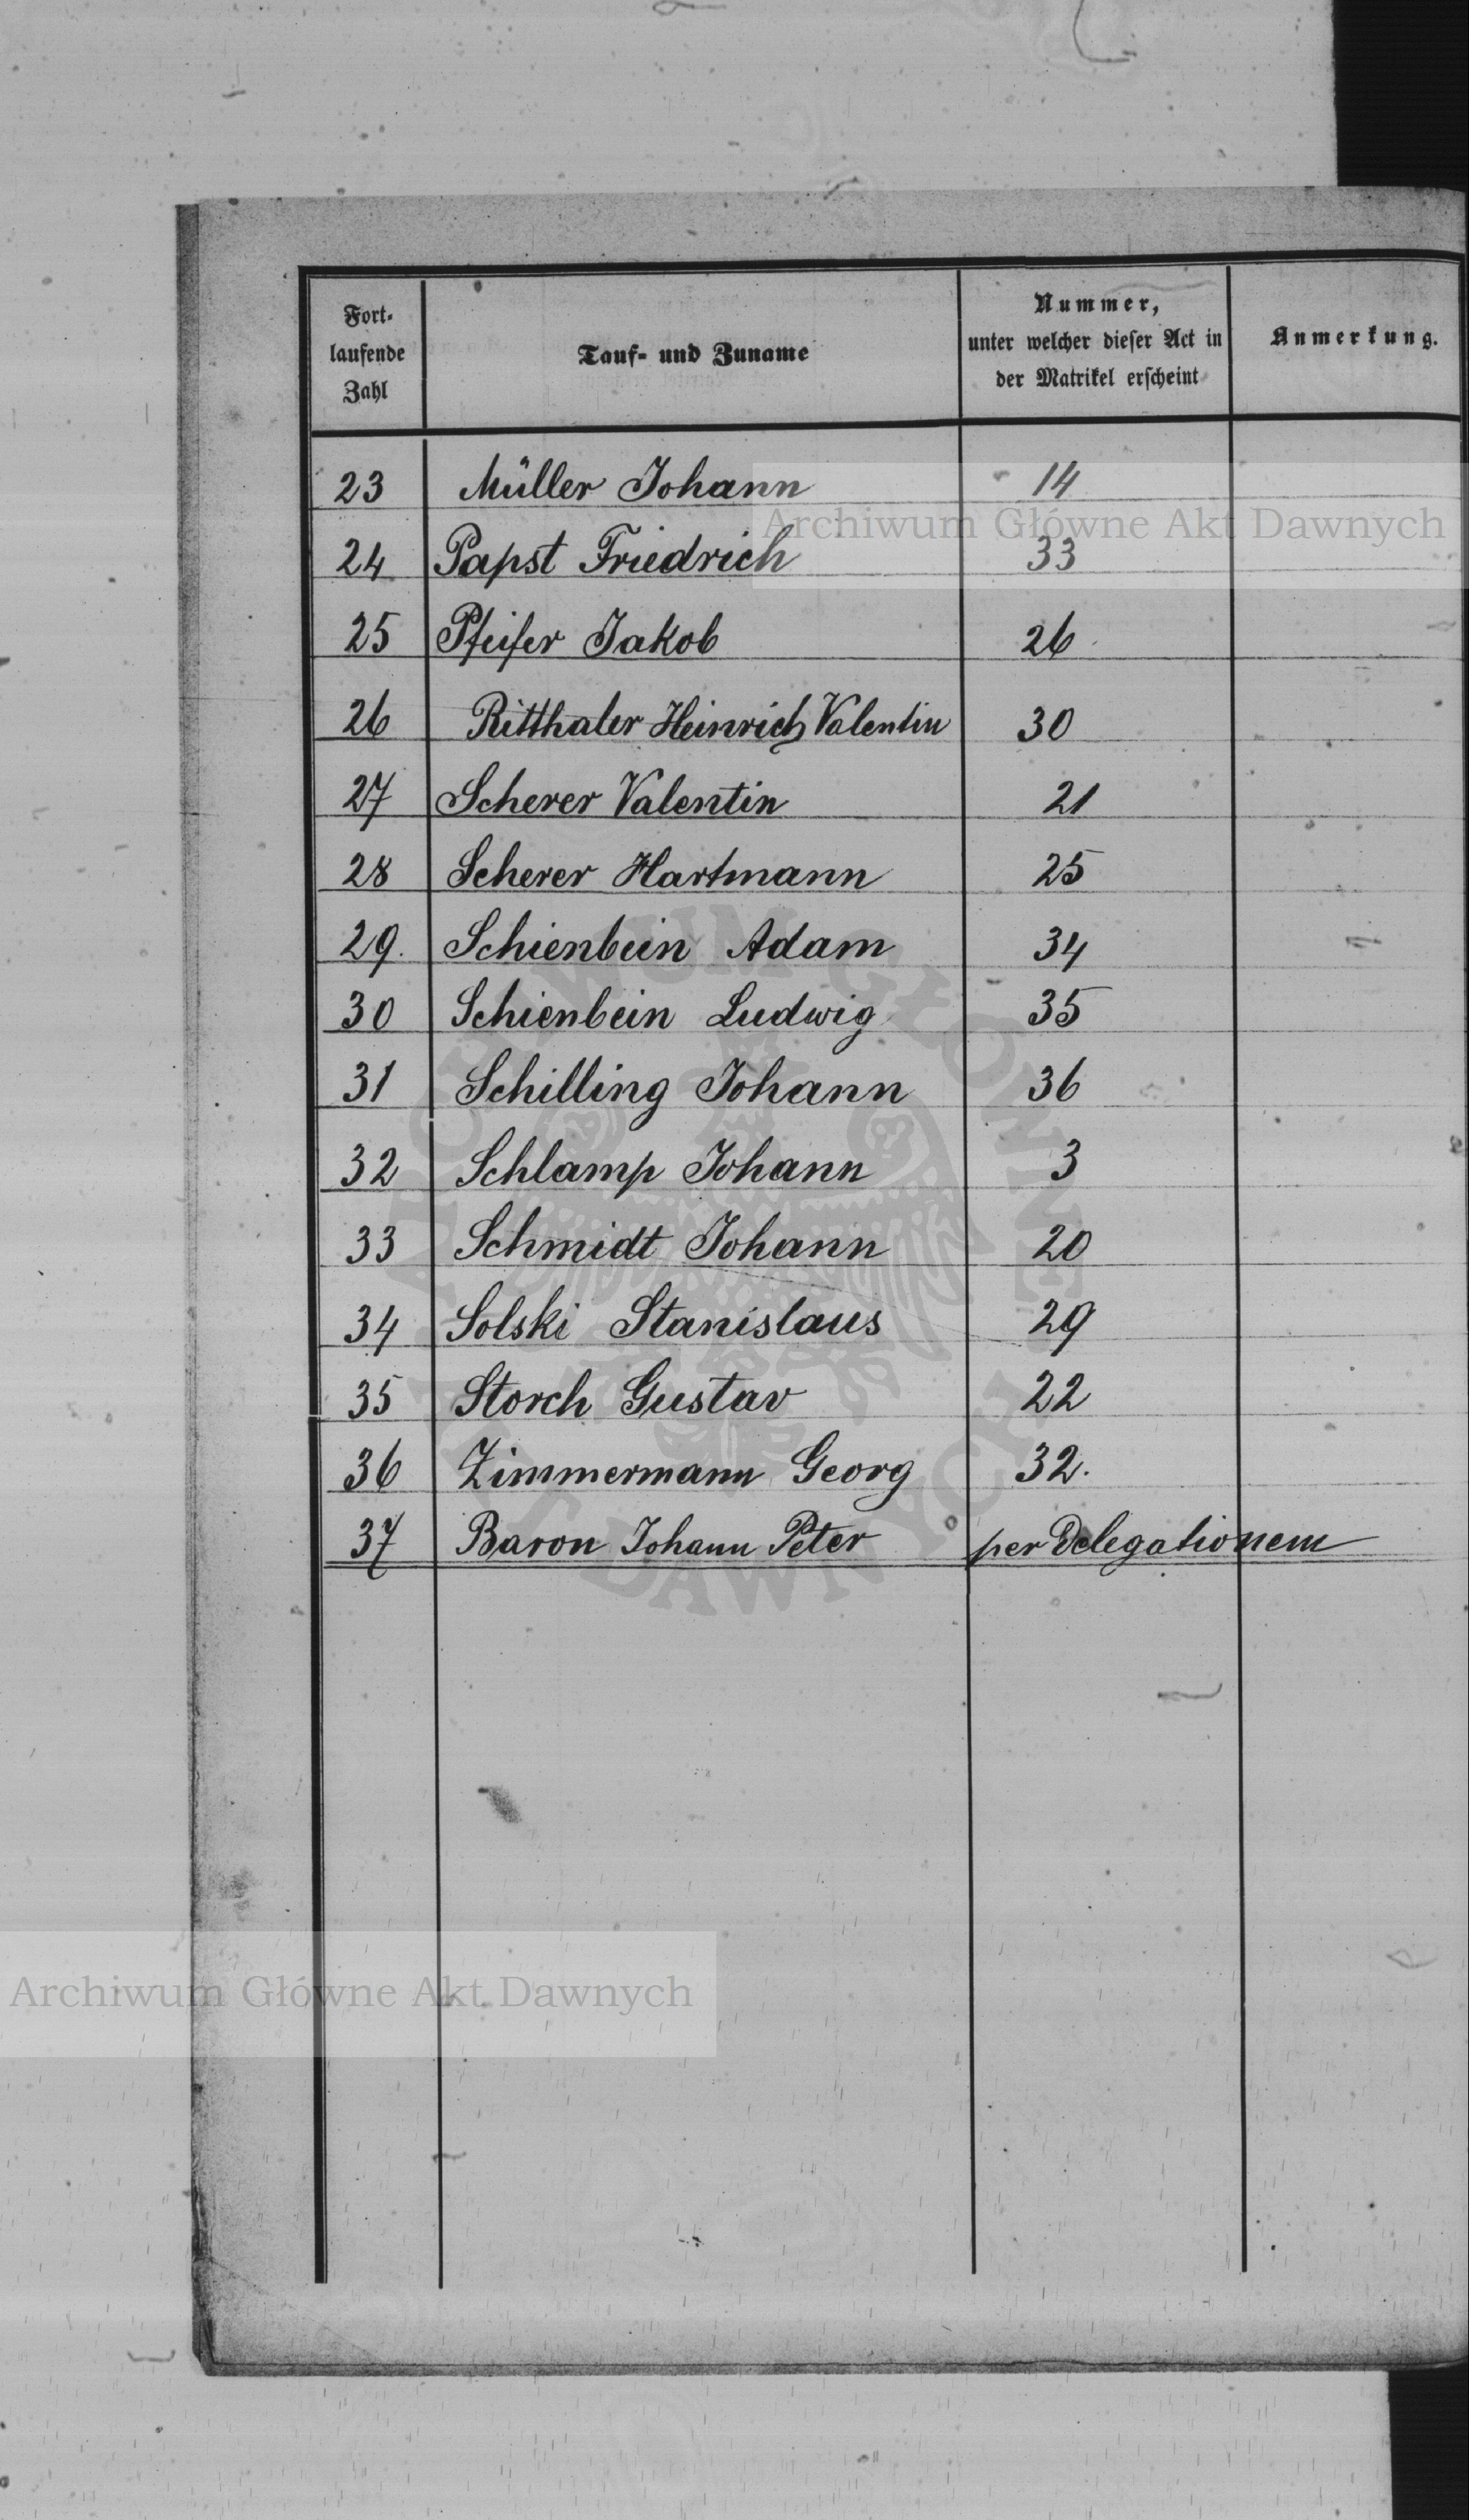 Fort-
laufende
Zahl
Tauf- und Zuname
Nummer,
unter welcher dieser Act in
der Matrikel erscheint
Anmerkung.
23 Müller Johann 14
24 Papst Friedrich 33
25 Pfeifer Jakob 26
26 Ritthaler Heinrich Valentin 30
27 Scherer Valentin 21
28 Scherer Hartmann 25
29. Schienbein Adam 34
30 Schienbein Ludwig 35
31 Schilling Johann 36
32 Schlamp Johann 3
33 Schmidt Johann 20
34 Solski Stanislaus 29
35 Storch Gustav 22
36 Zimmermann Georg 32.
37 Baron Johann Peter per Delegationem
Archiwum Główne Akt Dawnych
ARCHIWUM GŁÓWNE AKT DAWNYCH
Archiwum Główne Akt Dawnych